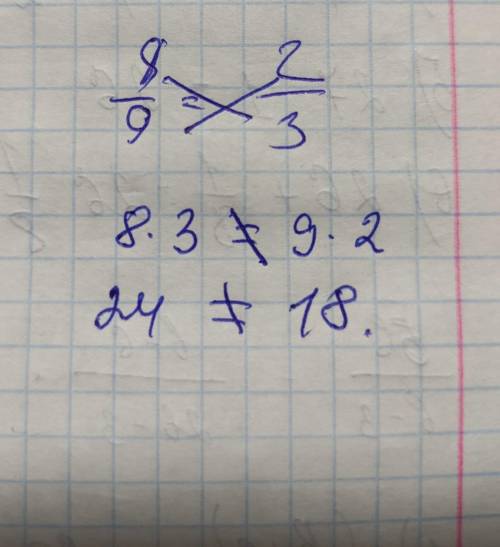 8/9 = 2/3
8 · 3 ≠ 9 · 2
24 ≠ 18.